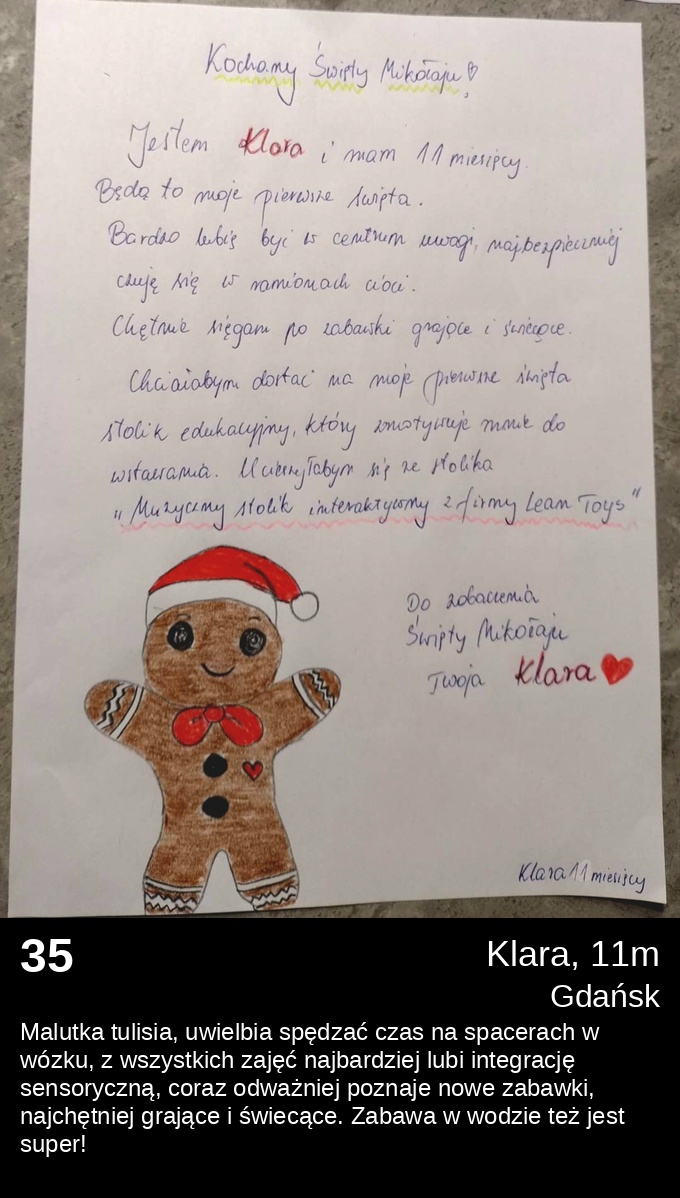 Kochany Święty Mikołaju,
Jestem Klara i mam 11 miesięcy.
Będą to moje pierwsze święta.
Bardzo lubię być w centrum uwagi, najbezpieczniej
czuję się w ramionach cioci.
Chętnie sięgam po zabawki grające i świecące.
Chciałabym dostać na moje pierwsze święta
stolik edukacyjny, który zmotywuje mnie do
wstawania. Ucieszyłabym się ze stolika
"Muzyczny stolik interaktywny z firmy Lean Toys"
Do zobaczenia
Święty Mikołaju
Twoja Klara
Klara 11 miesięcy
35
Klara, 11m
Gdańsk
Malutka tulisia, uwielbia spędzać czas na spacerach w
wózku, z wszystkich zajęć najbardziej lubi integrację
sensoryczną, coraz odważniej poznaje nowe zabawki,
najchętniej grające i świecące. Zabawa w wodzie też jest
super!